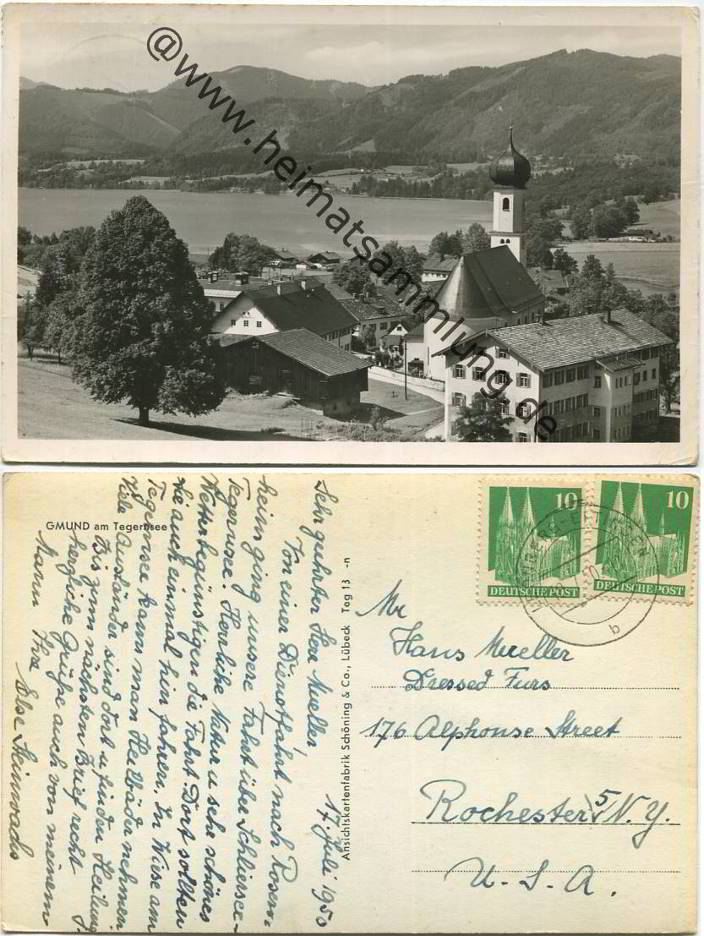 @www.heimatsammlung.de
GMUND am Tegernsee
Ansichtskartenfabrik Schöning & Co., Lübeck Teg 13 -n
10
DEUTSCHE POST
10
DEUTSCHE POST
b
17. Juli 1950
Sehr geehrter Herr Mueller!
Von einer Dienstfahrt nach Rosen-
heim ging unsere Fahrt über Schliersee-
Tegernsee. Herrliche Natur u sehr schönes
Wetter begünstigen die Fahrt. Dort sollten
Sie auch einmal hin fahren. In Wiese am
Tegernsee kann man Heilbäder nehmen
Viele Ausländer sind dort u finden Heilung
Bis zum nächsten Brief recht
herzliche Grüße auch von meinem
Mann Ihre
Else Steinwachs
Mr
Hans Mueller
Dressed Furs
176 Alphonse Street
Rochester 5, N.Y.
U.S.A.